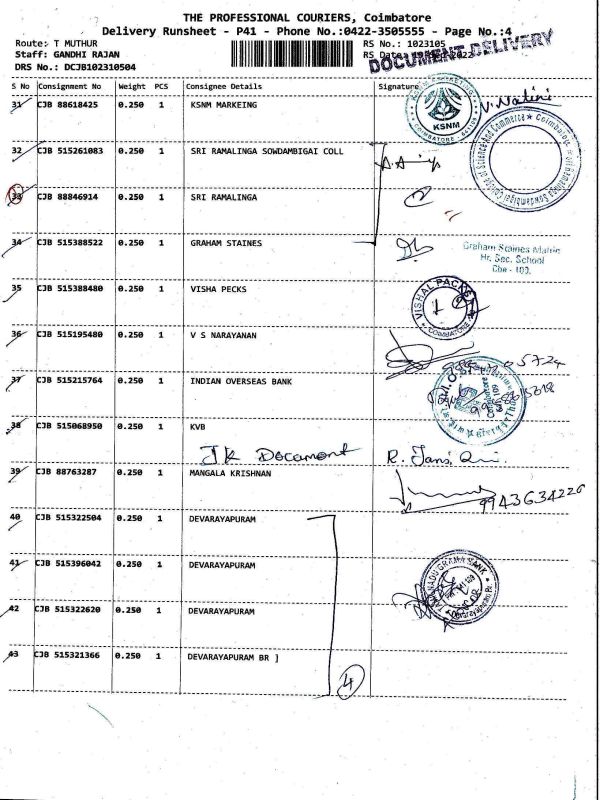 THE PROFESSIONAL COURIERS, Coimbatore
Delivery Runsheet - P41 - Phone No.:0422-3505555 - Page No.:4
Route: T MUTHUR RS No.: 1023105
Staff: GANDHI RAJAN RS Date: 2022
DRS No.: DCJB102310504
DOCUMENT DELIVERY
S No Consignment No Weight PCS Consignee Details Signature
31 CJB 88618425 0.250 1 KSNM MARKEING
KSNM
COIMBATORE
V. Nalini
32 CJB 515261083 0.250 1 SRI RAMALINGA SOWDAMBIGAI COLL
Sri Ramalinga Sowdambigai College of Science And Commerce Coimbatore
33 CJB 88846914 0.250 1 SRI RAMALINGA
34 CJB 515388522 0.250 1 GRAHAM STAINES
Graham Staines Matric
Hr. Sec. School
Cbe - 109.
35 CJB 515388480 0.250 1 VISHA PECKS
VISHAL PACKS
COIMBATORE
36 CJB 515195480 0.250 1 V S NARAYANAN
05724
37 CJB 515215764 0.250 1 INDIAN OVERSEAS BANK
38 CJB 515068950 0.250 1 KVB
JK Document R. Jansi
39 CJB 88763287 0.250 1 MANGALA KRISHNAN
9943634226
40 CJB 515322504 0.250 1 DEVARAYAPURAM
41 CJB 515396042 0.250 1 DEVARAYAPURAM
TAMIL NADU GRAMA BANK
Devarayapuram Br.
42 CJB 515322620 0.250 1 DEVARAYAPURAM
43 CJB 515321366 0.250 1 DEVARAYAPURAM BR ]
4